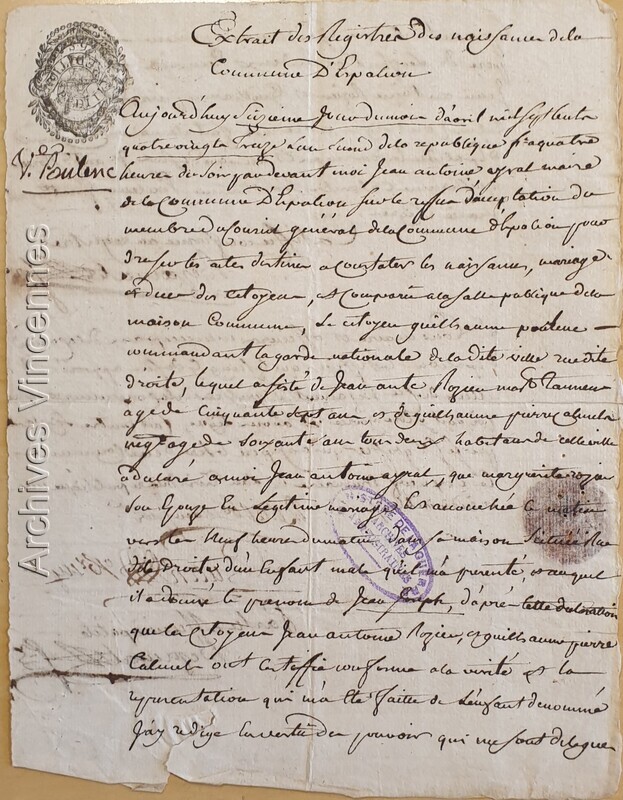 Extrait des Registres des naissances de la
Commune D'Espalion
Aujourd'huy sixieme Jour du mois d'avril mil sept cents
quatre vingt Treize L'an second de la republique sur quatre
heures du soir par devant moi Jean antoine ayral maire
de la Commune D'Espalion sur le refus d'acceptation du
membre du Conseil général de la Commune d'Espalion pour
dresser les actes destinés a Constater les naissances, mariages
et deces des citoyens, est Comparu a la salle publique de la
maison Commune, Le citoyen guilhaume poulenc
commandant la garde nationale de la dite ville rue dite
droite, lequel assisté de Jean ante Rozier marchd Tanneur
agé de Cinquante sept ans, et de guilhaume pierre Calmels
agé de soixante ans tous deux habitans de cette ville
a declaré a moi Jean antoine ayral, que marguerite rozier
son Epouse En Legitime mariage Est accouchée ce matin
vers les neuf heures du matin dans sa maison Située Rue
dite Droite d'un Enfant male qu'il m'a presenté, et auquel
il a donné le prenom de Jean Joseph, d'après cette declaration
que les Citoyens Jean antoine Rozier, et guilhaume pierre
Calmels ont Certiffié conforme a la verité et la
representation qui m'a été faitte de L'enfant denommé
J'ay redigé en vertu des pouvoirs qui me sont delegués
Ve. Poulenc
Archives Vincennes
ARCHIVES
ADMINISTRATIVES